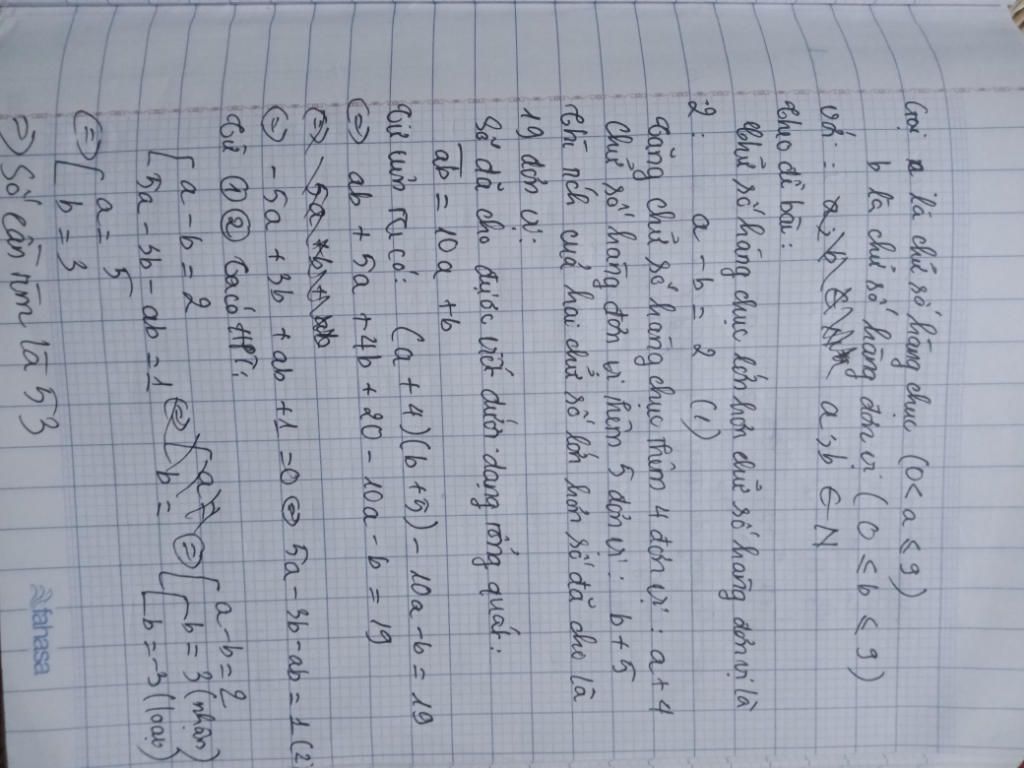 Gọi a là chữ số hàng chục (0 < a ≤ 9)
b là chữ số hàng đơn vị (0 ≤ b ≤ 9)
với: a; b ∈ N
theo đề bài:
Chữ số hàng chục lớn hơn chữ số hàng đơn vị là
2: a - b = 2 (1)
Tăng chữ số hàng chục thêm 4 đơn vị: a + 4
Chữ số hàng đơn vị thêm 5 đơn vị: b + 5
thì tích của hai chữ số lớn hơn số đã cho là
19 đơn vị:
Số đã cho được viết dưới dạng tổng quát:
ab = 10a + b
Từ trên ta có: (a + 4)(b + 5) - 10a - b = 19
⇔ ab + 5a + 4b + 20 - 10a - b = 19
⇔ -5a + 3b + ab + 1 = 0 ⇔ 5a - 3b - ab = 1 (2)
Từ ① ② ta có HPT:
[ a - b = 2 ⇔ [ a - b = 2
[ 5a - 3b - ab = 1 [ b = 3 (nhận)
[ b = -3 (loại)
⇔ [ a = 5
[ b = 3
⇒ Số cần tìm là 53
tahasa